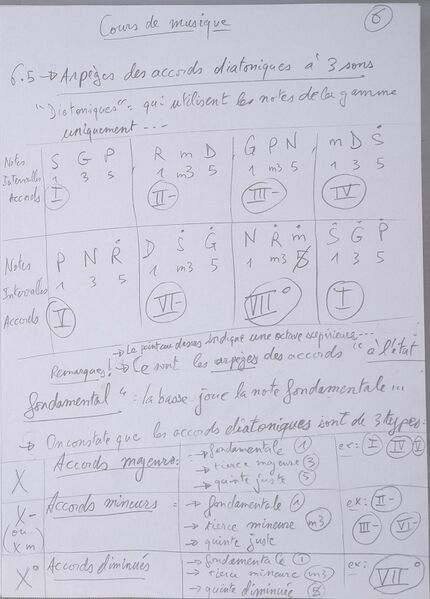 Cours de musique
6
6.5 → Arpèges des accords diatoniques à 3 sons
"Diatoniques" = qui utilisent les notes de la gamme
uniquement ---
Notes S G P R m D G P N m D Ṡ
Intervalles 1 3 5 1 m3 5 1 m3 5 1 3 5
Accords I II- III- IV
Notes P N Ṙ D Ṡ Ġ N Ṙ ṁ Ṡ Ġ Ṗ
Intervalles 1 3 5 1 m3 5 1 m3 1 3 5
Accords V VI- VII° I
→ Le point au dessus indique une octave supérieure...
Remarques! → Ce sont les arpèges des accords "à l'état
fondamental" : la basse joue la note fondamentale...
→ On constate que les accords diatoniques sont de 3 types:
X Accords majeurs: → fondamentale 1 ex: I IV V
→ tierce majeure 3
→ quinte juste 5
X- Accords mineurs = → fondamentale 1 ex: II-
(ou → tierce mineure m3 III- VI-
X m) → quinte juste
X° Accords diminués → fondamentale 1 ex: VII°
→ tierce mineure m3
→ quinte diminuée